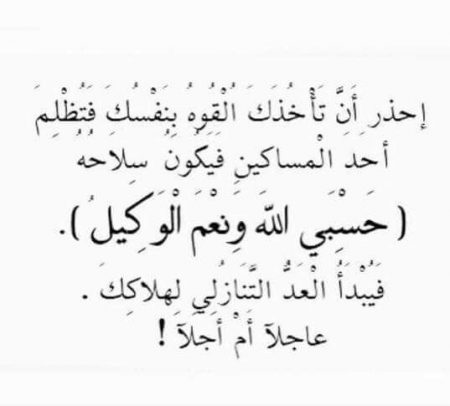 إحذر أَنَّ تَأْخُذَكَ الْقُوهُ بِنَفْسُكَ فَتُظْلِمَ
أحَدِ الْمساكينِ فَيَكُونُ سِلاحُهُ
( حَسْبَي اللهَ وَنْعَمْ الْوَكِيلُ ).
فَيُبْدَأُ الْعَدُّ التَّنَازُلِي لِهلاكِكَ .
عاجلآ أَمْ أَجَلآ !